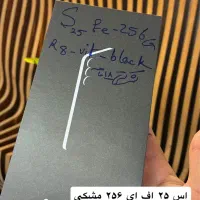 S25 Fe-256G
R8-vit-black
اس ۲۵ اف ای ۲۵۶ مشکی